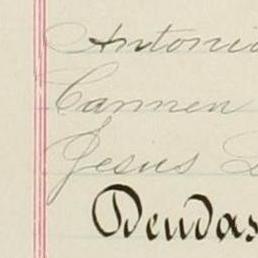 Antonio
Carmen
Jesus
Deudas